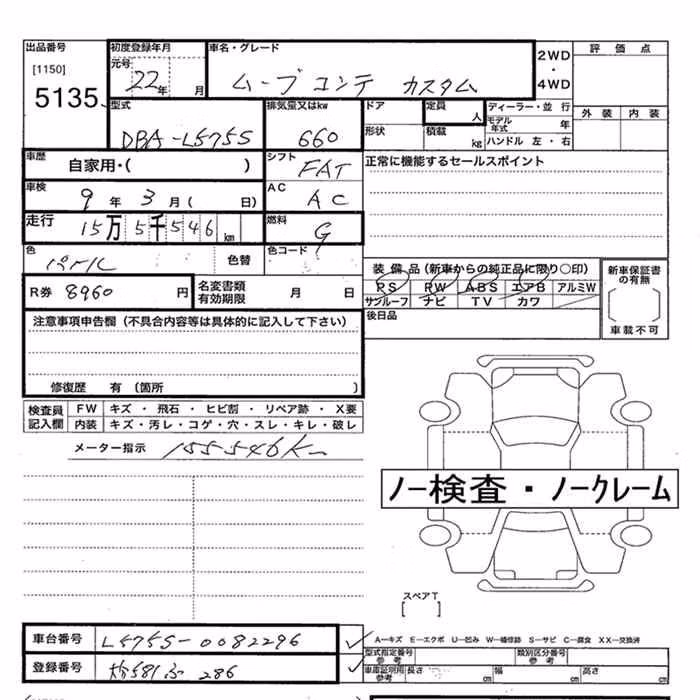 出品番号 初度登録年月 車名・グレード 2WD・4WD 評価点
[1150] 元号 22年 月 ムーブコンテ カスタム
5135 外装 内装
型式 排気量又はkw ドア 定員 人 ディーラー・並行
DBA-L575S 660 形状 積載 kg モデル年式 年
ハンドル 左・右
車歴 自家用・( ) シフト FAT 正常に機能するセールスポイント
車検 9年 3月( 日) AC AC
走行 15万5千546km 燃料 G
色 パール 色替 色コード
装備品(新車からの純正品に限り○印) 新車保証書の有無
PS PW ABS エアB アルミW
R券 8960円 名変書類有効期限 月 日 サンルーフ ナビ TV カワ
車載不可
注意事項申告欄(不具合内容等は具体的に記入して下さい) 後日品
修復歴 有(箇所 )
検査員記入欄 FW キズ・飛石・ヒビ割・リペア跡・X要
内装 キズ・汚レ・コゲ・穴・スレ・キレ・破レ
メーター指示 155546K
ノー検査・ノークレーム
スペアT
[ ]
車台番号 L575S-0082296 A-キズ E-エクボ U-凹み W-補修跡 S-サビ C-腐食 XX-交換済
型式指定番号 参考 類別区分番号 参考
登録番号 581 286 車庫証明 参考 長さ cm 幅 cm 高さ cm